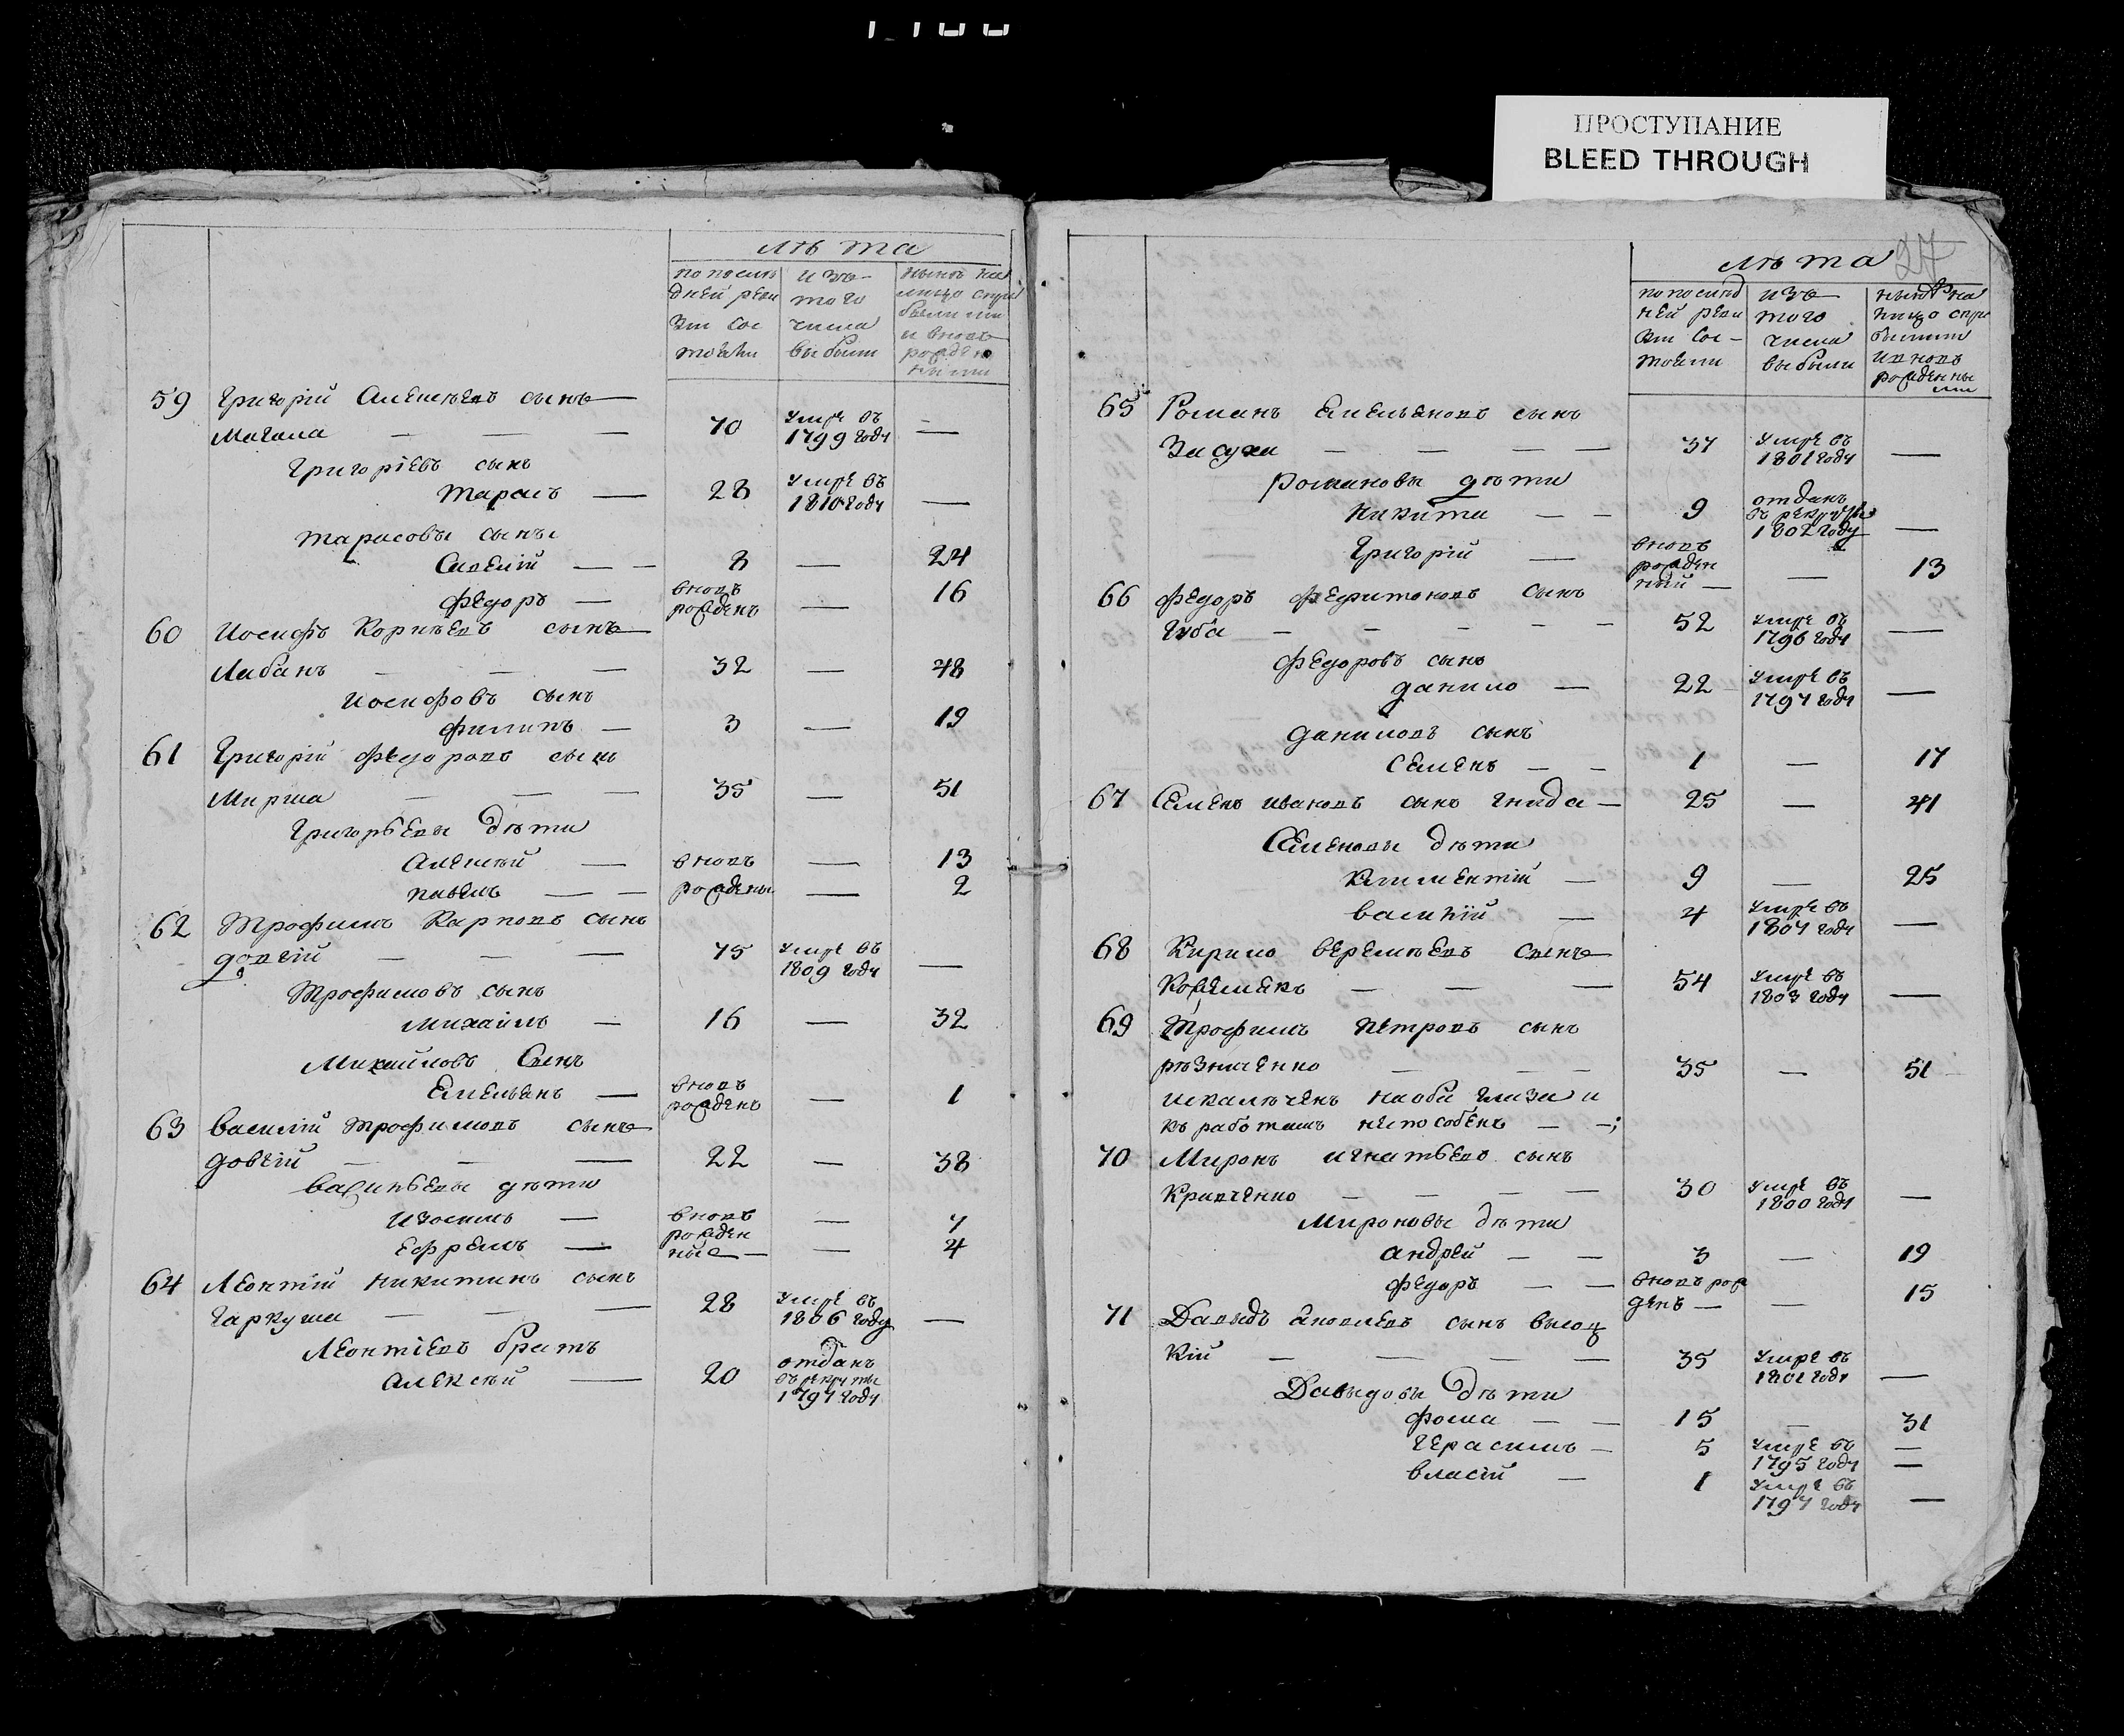 ПРОСТУПАНИЕ
BLEED THROUGH
лѣта
по послѣ
дней реви
зіи сос
тояли
изъ
того
числа
выбыли
нынѣ на
лицо съ при
былими
и вновь
рожден
ными
59 Григорій Алексѣевъ сынъ
— — — 70 умре въ 1799 году —
Григоріевъ сынъ
Тарасъ — 28 умре въ 1810 году —
Тарасовы сыны
Савелій — — 8 — 24
Федоръ — вновь рожденъ — 16
60 Иосифъ Корнѣевъ сынъ
Лабанъ — — — 32 — 48
Иосифовъ сынъ
Филипъ — 3 — 19
61 Григорій Федоровъ сынъ
Мирша — — — 35 — 51
Григорьевы дѣти
Алексѣй — вновь — 13
Павелъ — — рождены — 2
62 Трофимъ Карповъ сынъ
Довгій — — — 75 умре въ 1809 году —
Трофимовъ сынъ
Михайлъ — 16 — 32
Михайловъ Сынъ
Емельянъ — вновь рожденъ — 1
63 Василій Трофимовъ сынъ
Довгій — — — 22 — 38
Васильевы дѣти
Изосимъ — вновь — 7
Ефремъ — рожден ные — — 4
64 Леонтій Никитинъ сынъ
Гаркуша — — — 28 умре въ 1806 году —
Леонтіевъ братъ
Алексѣй — 20 отданъ въ рекруты 1797 году
27
лѣта
по послѣд
ней реви
зіи сос-
тояли
изъ
того
числа
выбыли
нынѣ на
лицо съ при
былими
и вновь
рожденны
ми
65 Романъ Емельяновъ сынъ
Засуха — — — — 37 умре въ 1801 году —
Романовы дѣти
Никита — — 9 отданъ въ рекруты 1802 году —
Григорій — вновь рожден ный — — 13
66 Федоръ сынъ
Губа — — — — — 52 умре въ 1796 году —
Федоровъ сынъ
Данило — 22 умре въ 1797 году —
Даниловъ сынъ
Семенъ — — 1 — 17
67 Семенъ Ивановъ сынъ Гнида — 25 — 41
Семеновы дѣти
Климентій — 9 — 25
Василій — 4 умре въ 1807 году —
68 Кирило Веремѣевъ сынъ
Кожемякъ — — — 54 умре въ 1803 году —
69 Трофимъ Петровъ сынъ
Рѣзниченко — — — 35 — 51
искалѣченъ на оба глаза и
къ работамъ неспособенъ — —;
70 Миронъ Игнатьевъ сынъ
Кравченко — — — — 30 умре въ 1800 году —
Мироновы дѣти
Андрей — — 3 — 19
Федоръ — — вновь рож денъ — — 15
71 Давыдъ Яковлевъ сынъ Высоц
кій — — — — 35 умре въ 1801 году —
Давыдовы дѣти
Фома — — 15 — 31
Герасимъ — 5 умре въ 1795 году —
Власій — 1 умре въ 1797 году —